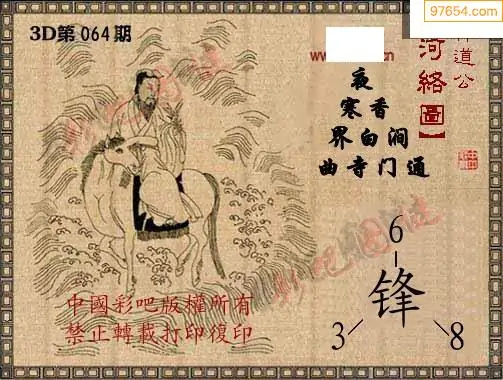 97654.com
3D第064期
www.
河絡【圖】
道公
夜
寒香
界白涧
曲寺门通
6
锋
3 8
中國彩吧版權所有
禁止轉載打印復印